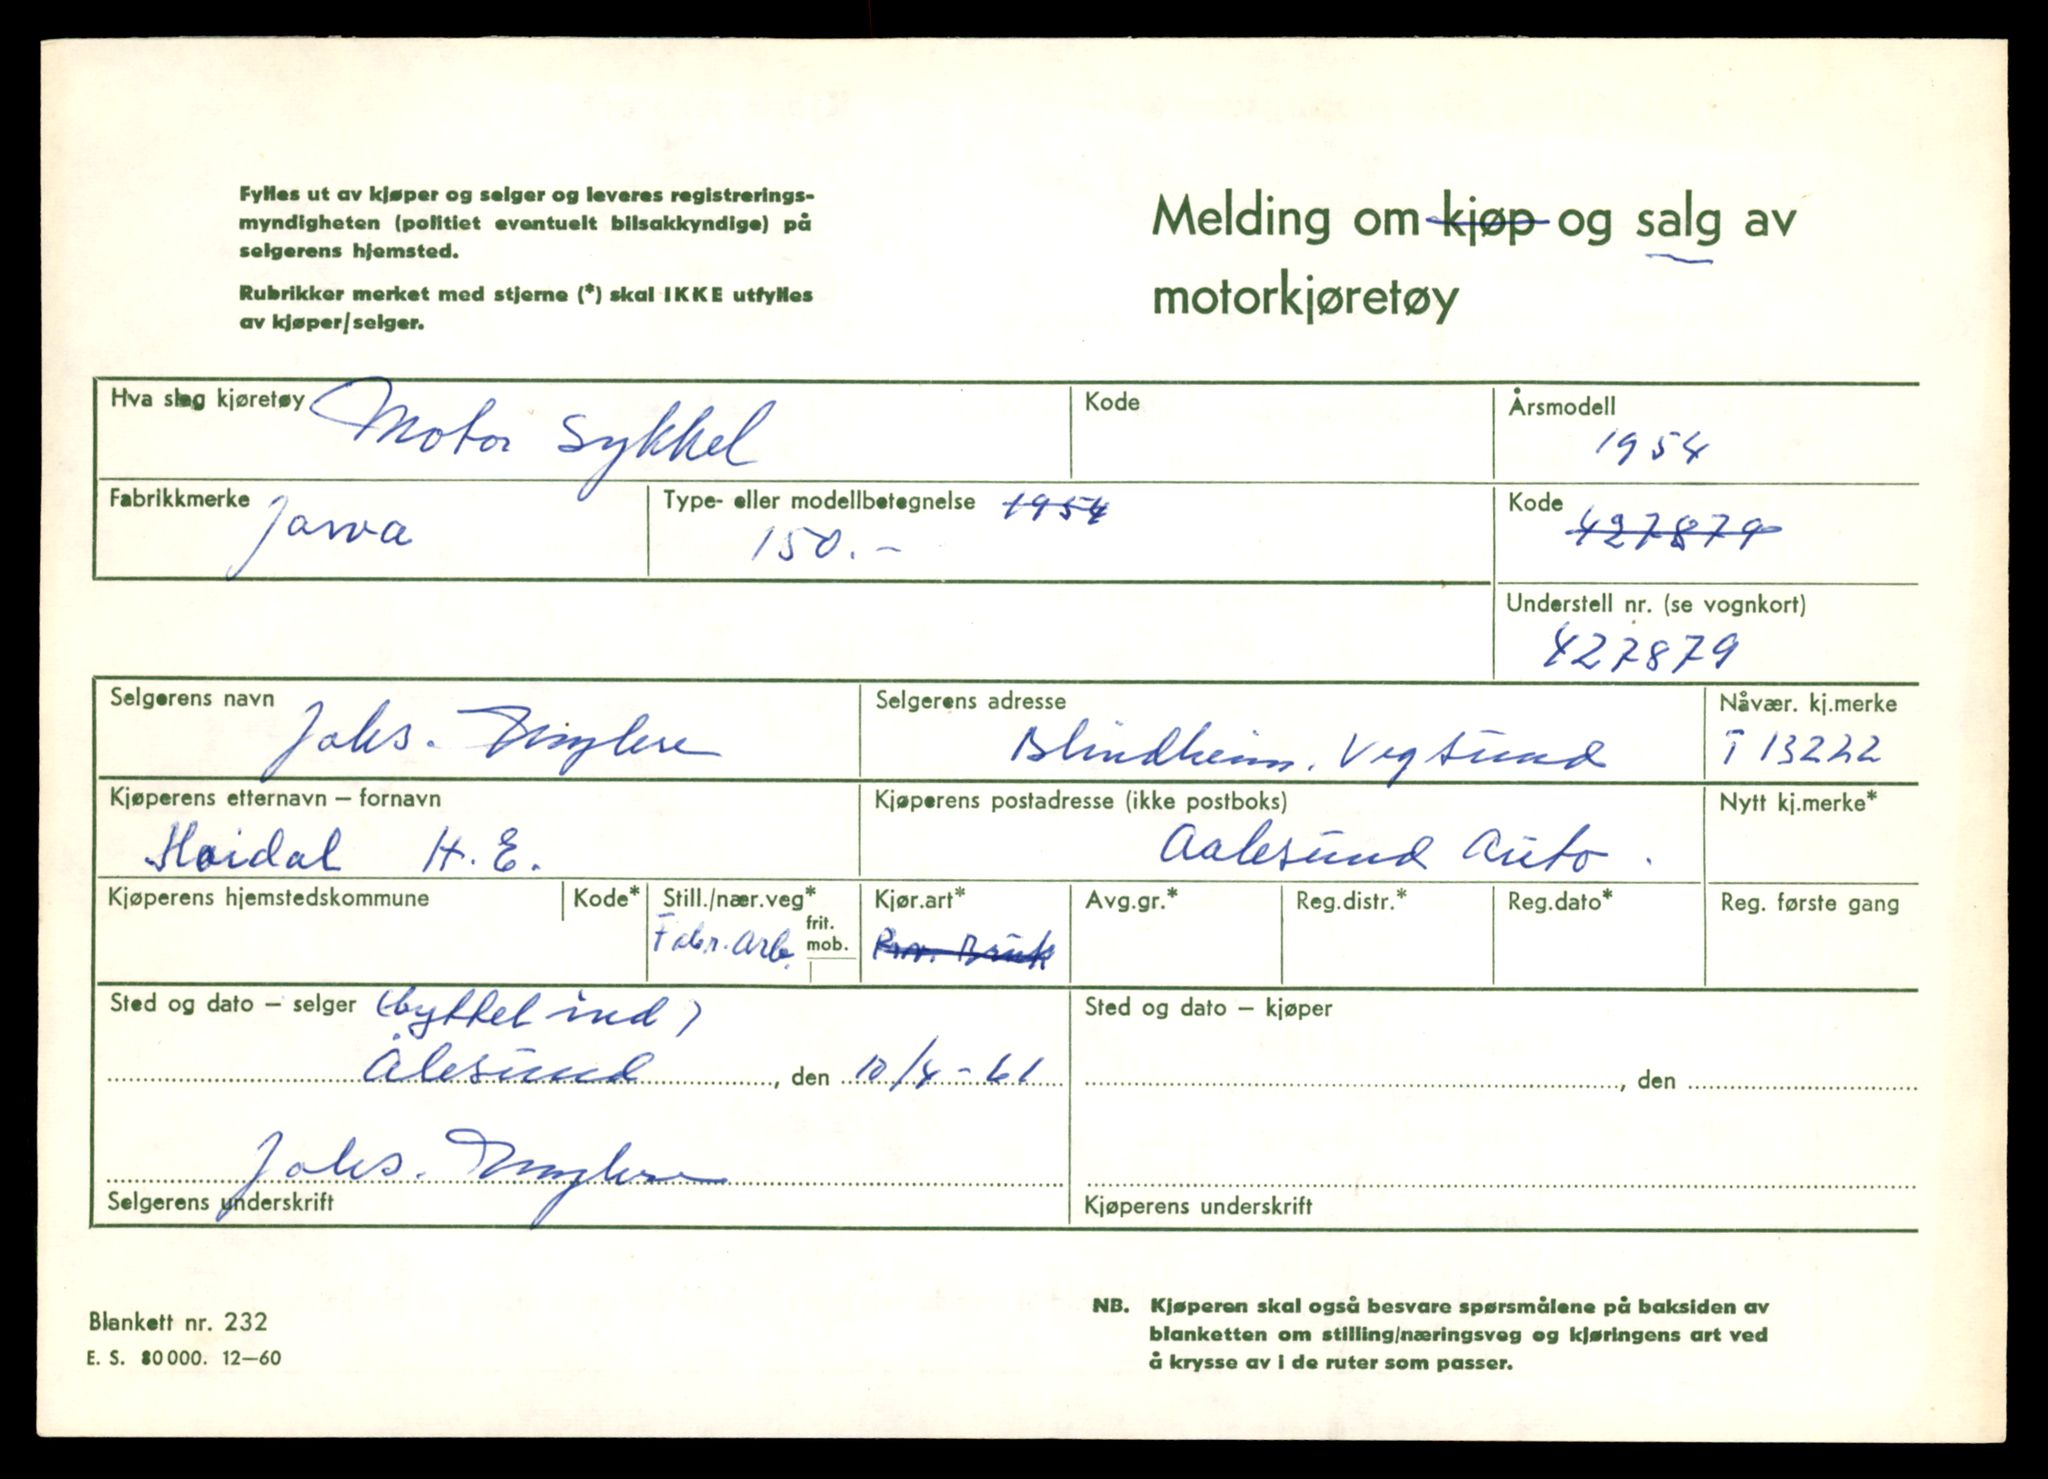 Fylles ut av kjøper og selger og leveres registrerings-
myndigheten (politiet eventuelt bilsakkyndige) på
selgerens hjemsted.
Rubrikker merket med stjerne (*) skal IKKE utfylles
av kjøper/selger.
Melding om kjøp og salg av
motorkjøretøy
Hva slag kjøretøy Motor sykkel
Kode
Årsmodell
1954
Fabrikkmerke Jawa
Type- eller modellbetegnelse 1954
150.-
Kode
427879
Understell nr. (se vognkort)
427879
Selgerens navn
Johs.
Selgerens adresse
Blindheim, Vegsund
Nåvær. kj.merke
T 13222
Kjøperens etternavn – fornavn
Hoidal H.E.
Kjøperens postadresse (ikke postboks)
Aalesund Auto.
Nytt kj.merke*
Kjøperens hjemstedskommune
Kode*
Still./nær.veg*
Fabr. arb.
frit.
mob.
Kjør.art*
Prv. Bruk
Avg.gr.*
Reg.distr.*
Reg.dato*
Reg. første gang
Sted og dato – selger (byttet ind)
Ålesund, den 10/4-61
Sted og dato – kjøper
, den
Johs.
Selgerens underskrift
Kjøperens underskrift
Blankett nr. 232
E. S. 80 000. 12—60
NB. Kjøperen skal også besvare spørsmålene på baksiden av
blanketten om stilling/næringsveg og kjøringens art ved
å krysse av i de ruter som passer.